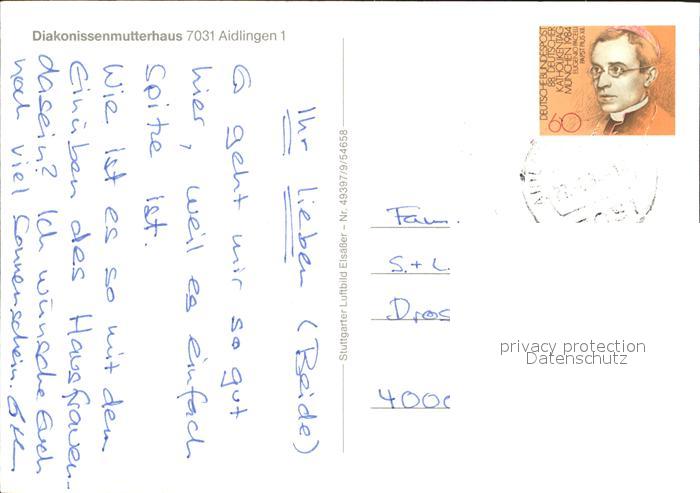 Diakonissenmutterhaus 7031 Aidlingen 1
Ihr lieben (Beide)
Es geht mir so gut
hier, weil es einfach
Spitze ist.
Wie ist es so mit dem
Einüben des Hausfrauen-
daseins? Ich wünsche Euch
noch viel Sonnenschein.
Stuttgarter Luftbild Elsäßer – Nr. 49397/9/54658
DEUTSCHE BUNDESPOST
88. DEUTSCHER
KATHOLIKENTAG
MÜNCHEN 1984
EUGENIO PACELLI
PAPST PIUS XII.
60
Fam.
S. + L.
Dros
4000
privacy protection
Datenschutz